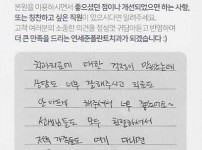 본원을 이용하시면서 좋으셨던 점이나 개선되었으면 하는 사항,
또는 칭찬하고 싶은 직원이 있으시다면 알려주세요.
고객 여러분의 소중한 의견을 정성껏 귀담아듣고 반영하여
더 큰 만족을 드리는 연세준플란트치과가 되겠습니다 :)
치과치료에 대한 걱정이 많았는데
상담도 너무 잘해주시고 치료도
안 아프게 해주셔서 너무 좋았어요~
선생님들도 모두 친절하셔서
저희 가족들도 여기 다니려